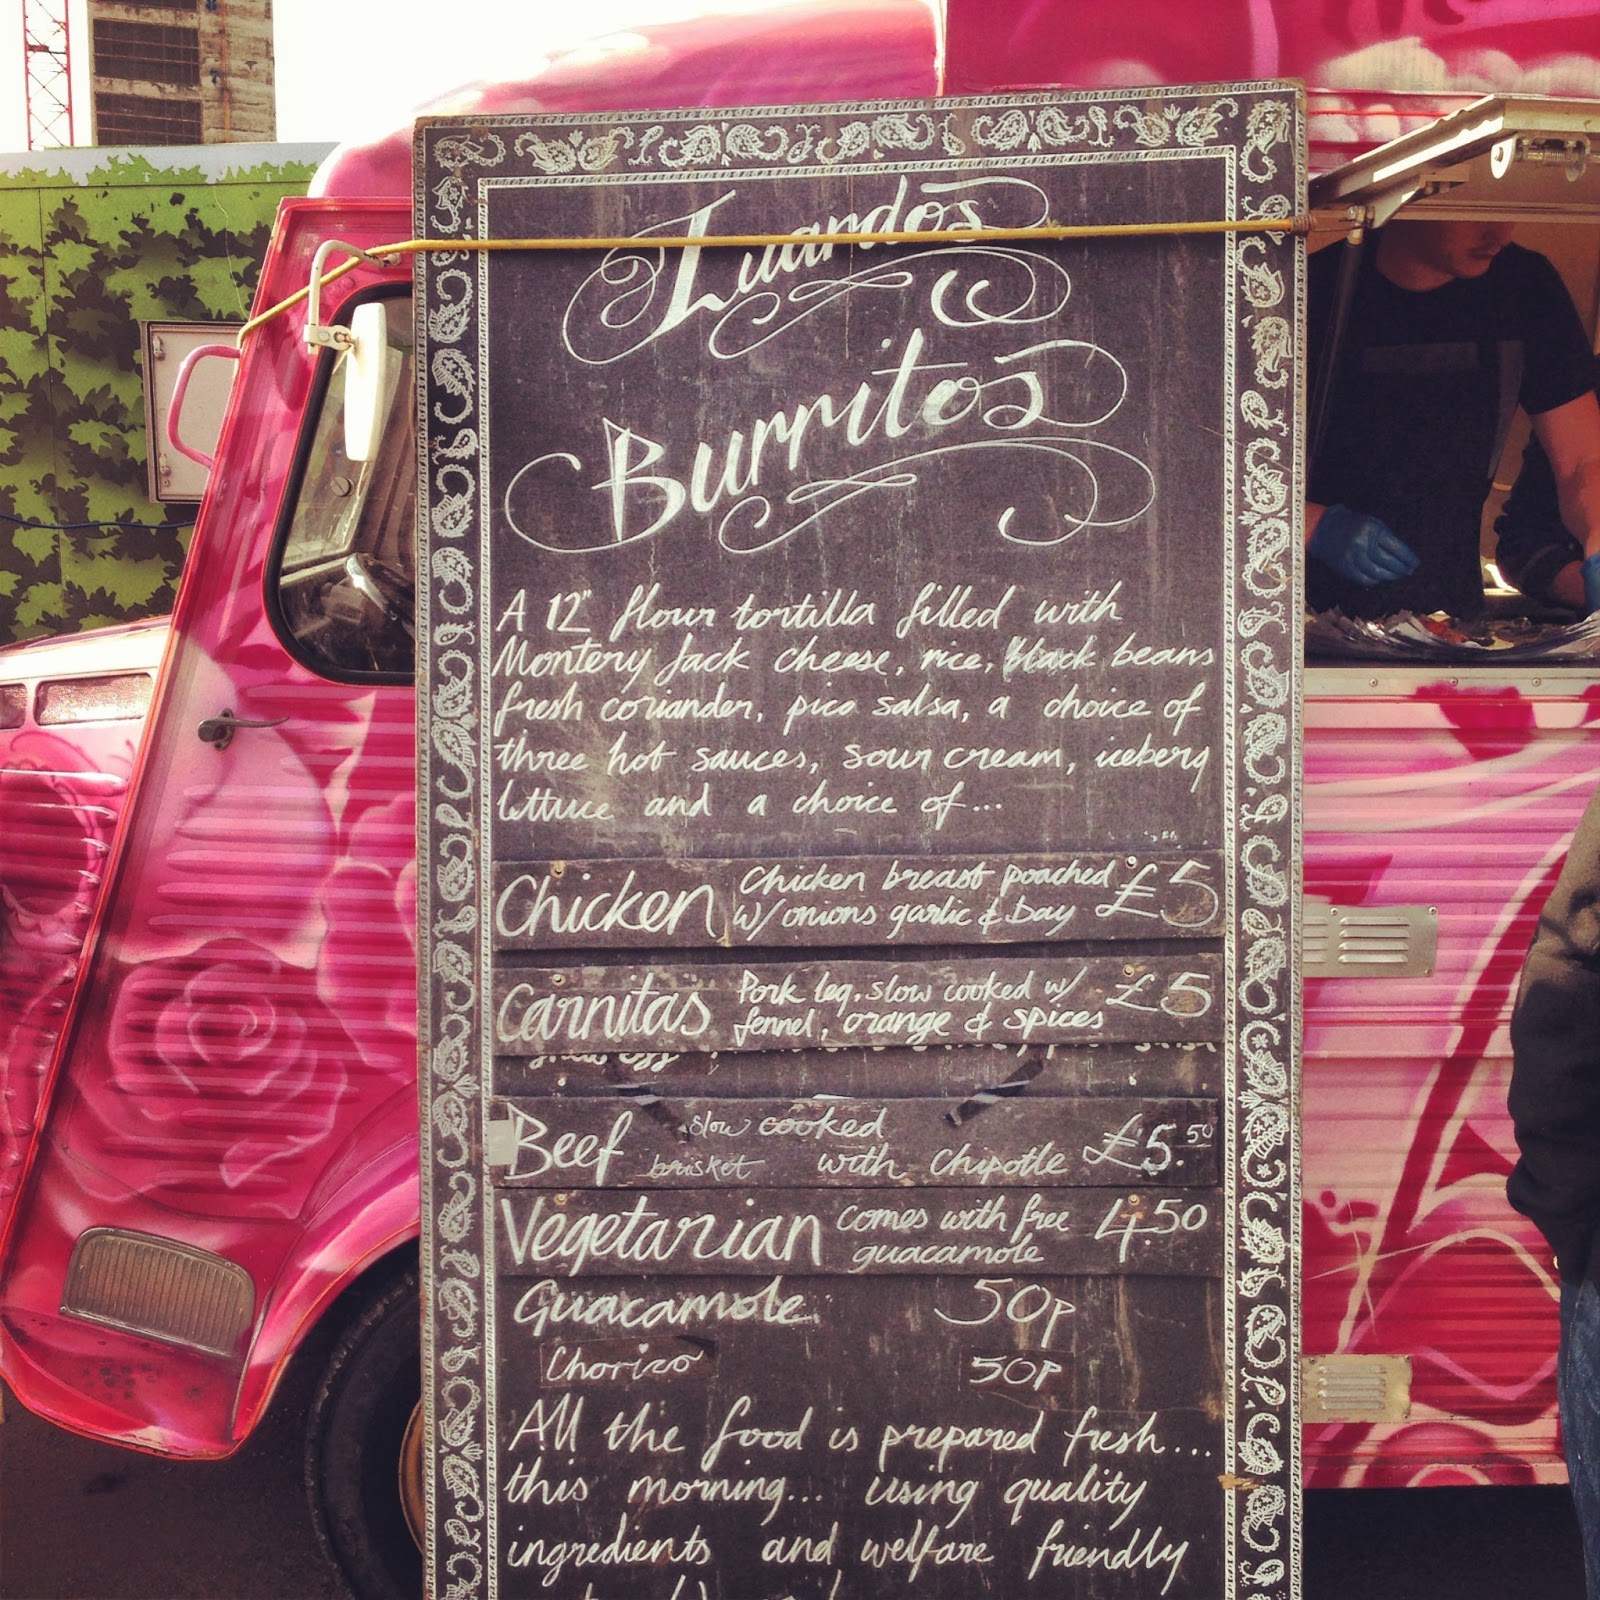 Luardos
Burritos
A 12" flour tortilla filled with
Montery Jack cheese, rice, black beans
fresh coriander, pico salsa, a choice of
three hot sauces, sour cream, iceberg
lettuce and a choice of...
Chicken Chicken breast poached £5
w/ onions garlic & bay
Carnitas Pork leg, slow cooked w/ £5
fennel, orange & spices
Beef slow cooked £5.50
brisket with chipotle
Vegetarian comes with free 4.50
guacamole
Guacamole 50p
Chorizo 50p
All the food is prepared fresh...
this morning... using quality
ingredients and welfare friendly